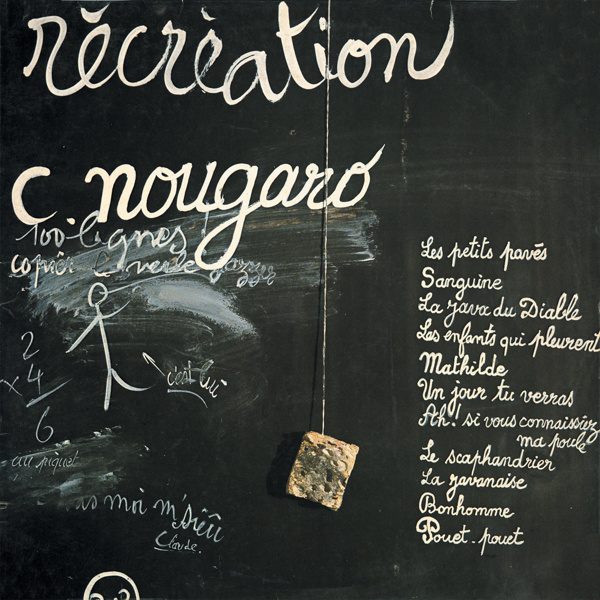 récrèation
c nougaro
100 lignes!
copier le verbe jazzer
c'est lui
2
× 4
6
au piquet
as moi m'sieu
Claude.
Les petits pavés
Sanguine
La java du Diable
Les enfants qui pleurent
Mathilde
Un jour tu verras
Ah! si vous connaissiez
ma poule
Le scaphandrier
La javanaise
Bonhomme
Pouet-pouet